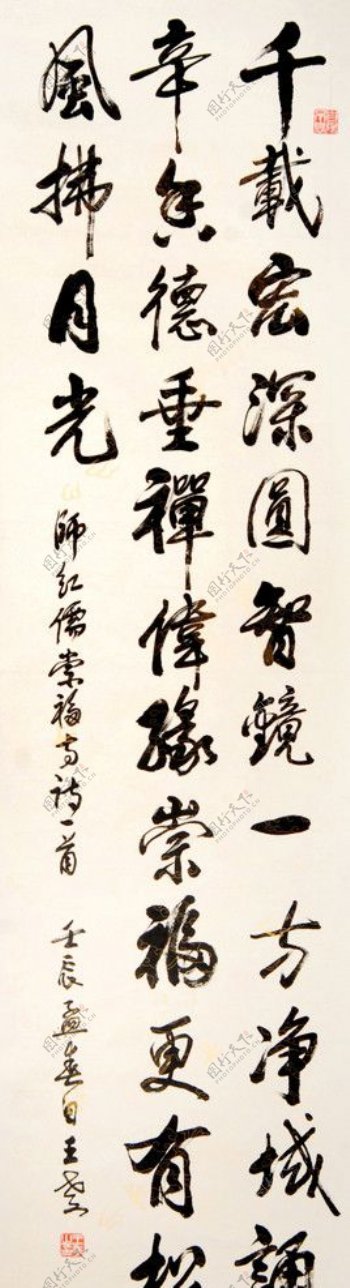 千載宏深圓智鏡一方净域誦
辛德垂禪偉緣崇福更有松
風拂月光
師紅儒崇福寺詩一首
壬辰孟日王
图行天下
PHOTOPHOTO.CN